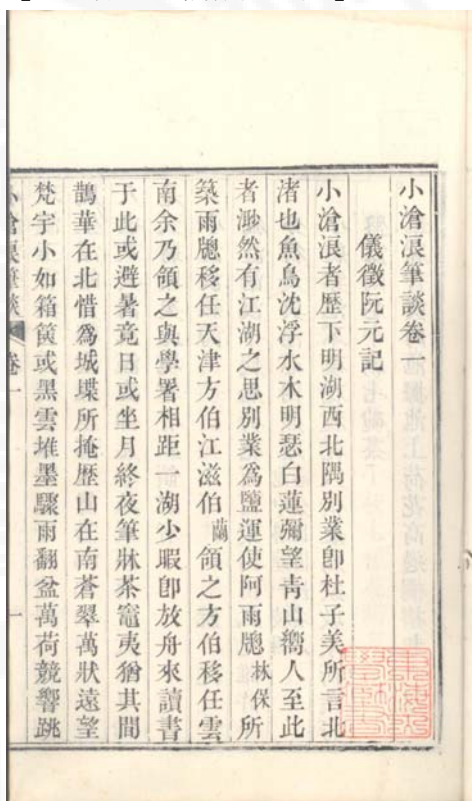 小滄浪筆談卷一
儀徵阮元記
小滄浪者歷下明湖西北隅別業卽杜子美所言北
渚也魚鳥沈浮水木明瑟白蓮彌望青山嚮人至此
者渺然有江湖之思別業爲鹽運使阿雨牕林保所
築雨牕移任天津方伯江滋伯蘭領之方伯移任雲
南余乃領之與學署相距一湖少暇卽放舟來讀書
于此或避暑竟日或坐月終夜筆牀茶竈夷猶其間
鵲華在北惜爲城堞所掩歷山在南蒼翠萬狀遠望
梵宇小如箱篋或黑雲堆墨驟雨翻盆萬荷競響跳
小滄浪筆談 卷一 一